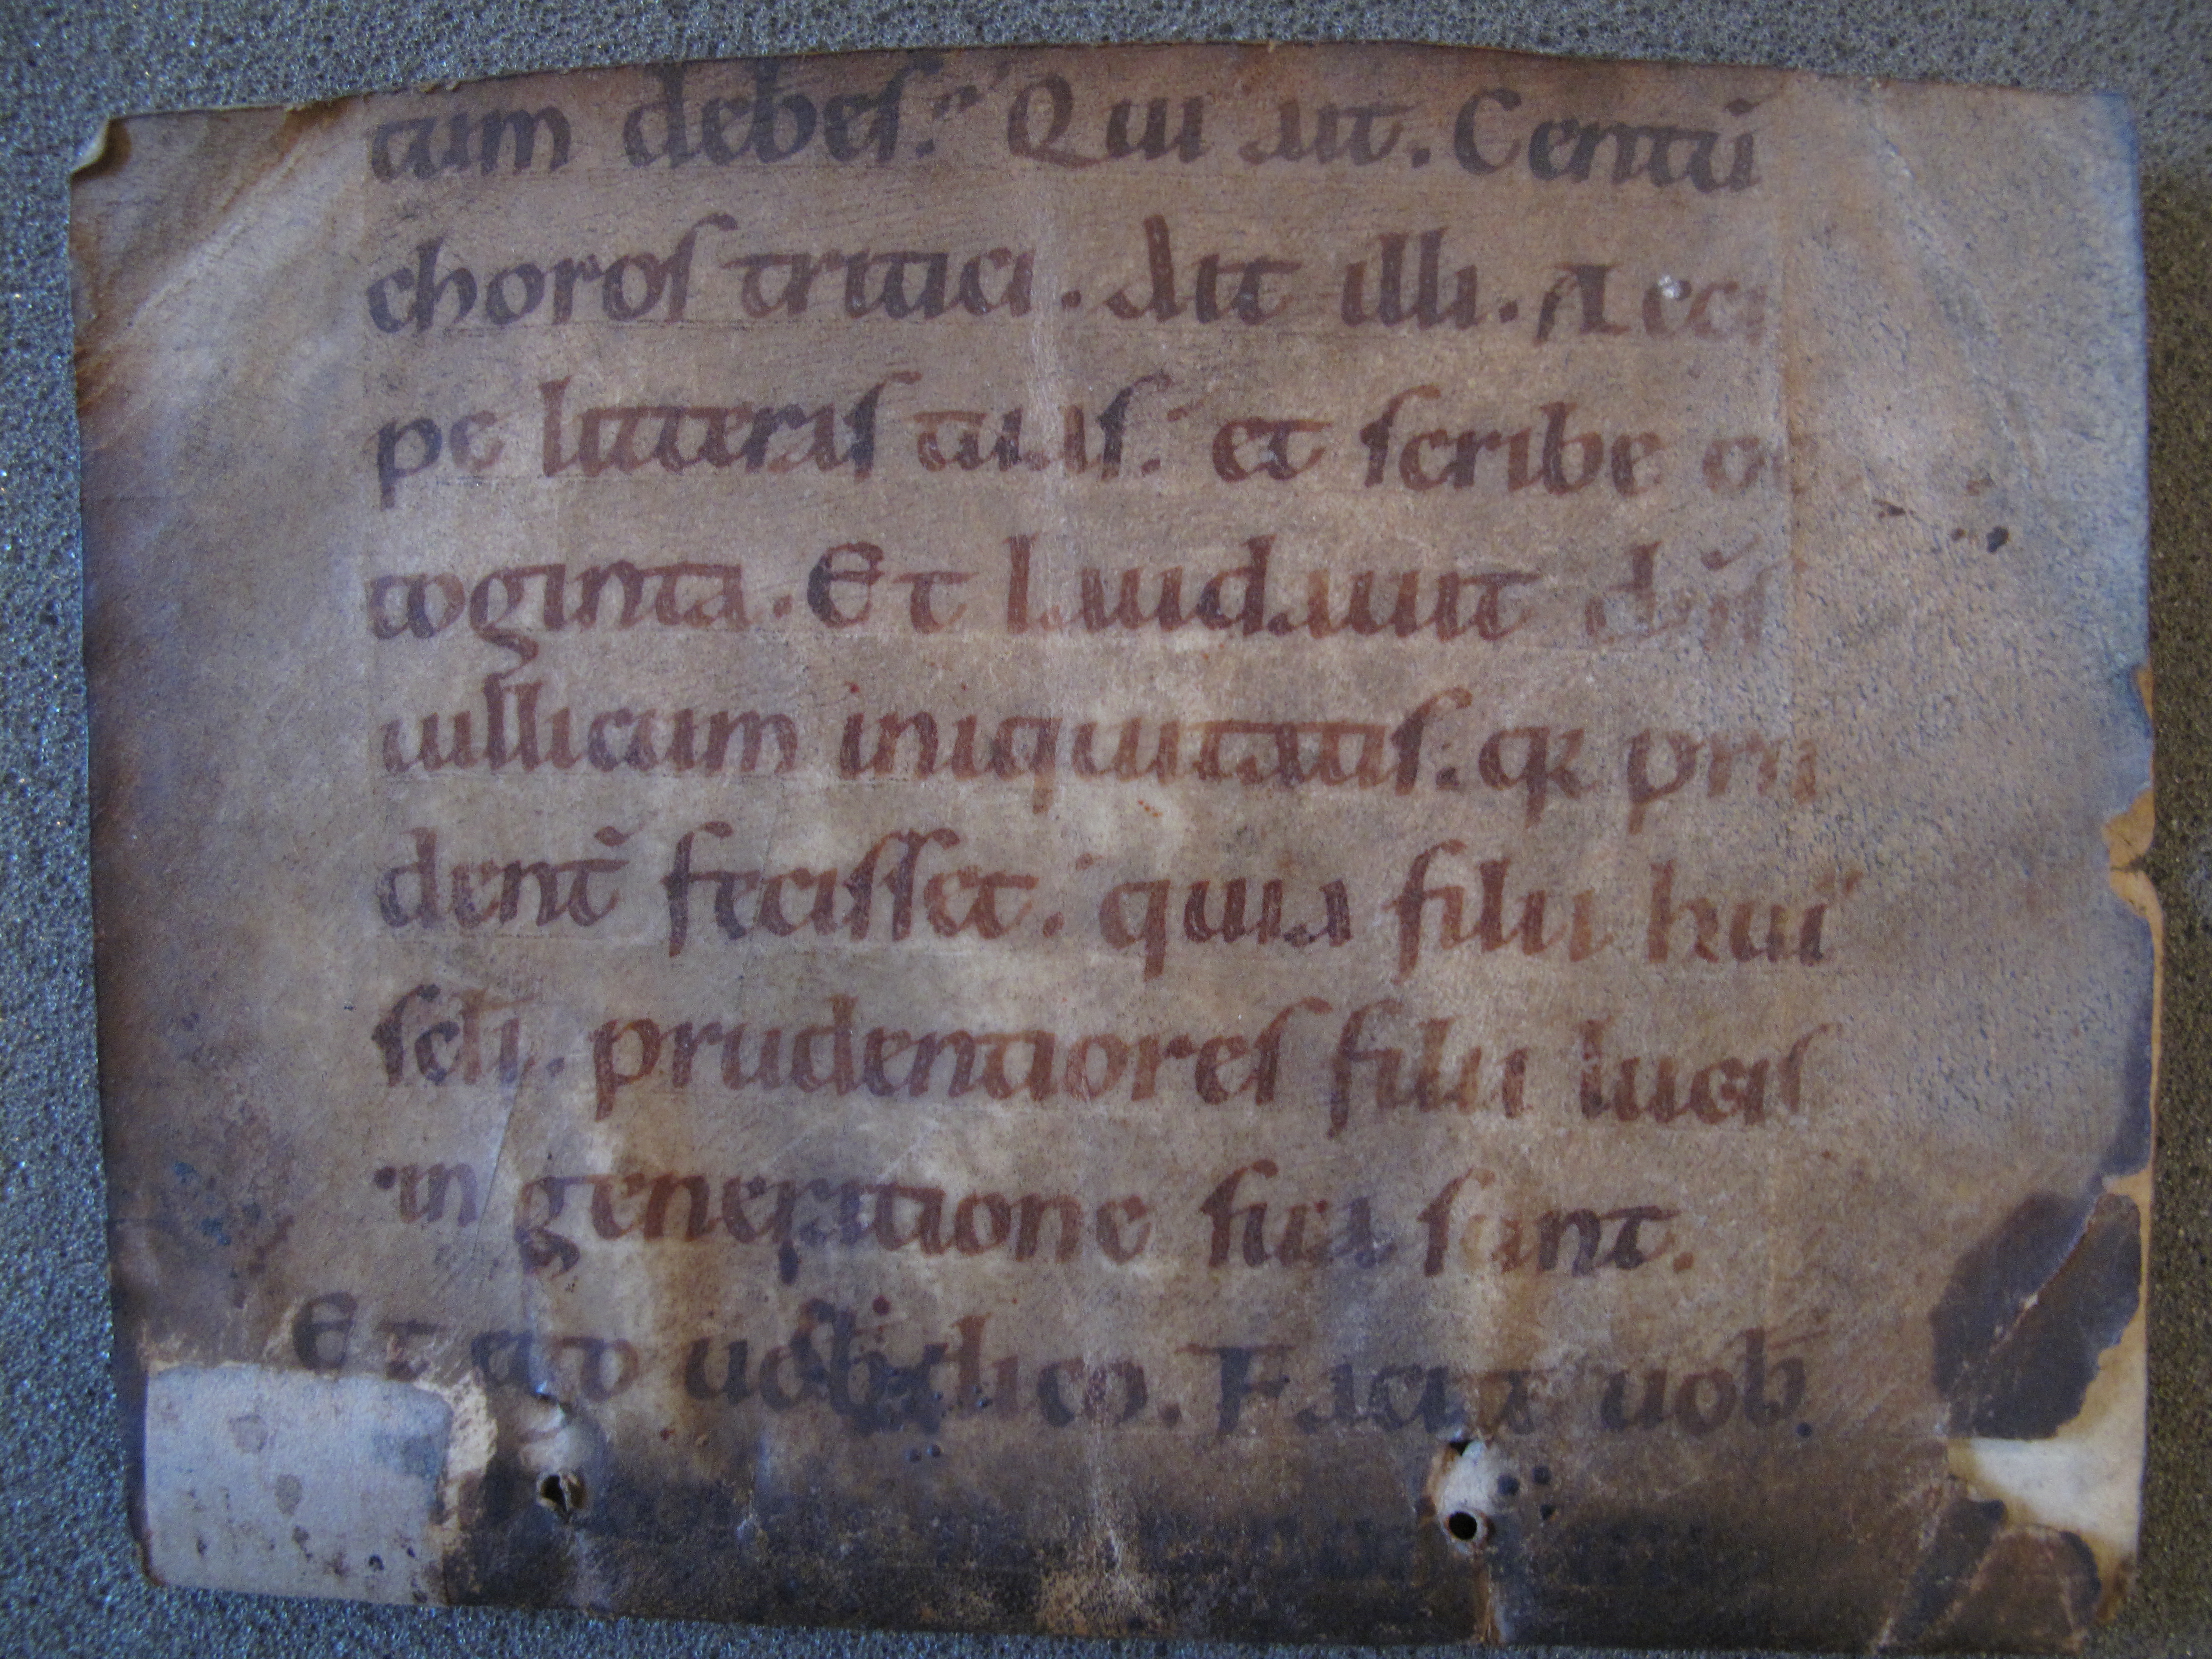 tum debes? Qui ait. Centū
choros tritici. Ait illi. Acci
pe litteras tuas. et scribe oc
toginta. Et laudauit dn̄s
uillicum iniquitatis. qr pru
dent̄ fecisset. quia filii hui
scłi. prudentiores filii lucis
in generatione sua sunt.
Et ego uob dico. Facite uob.